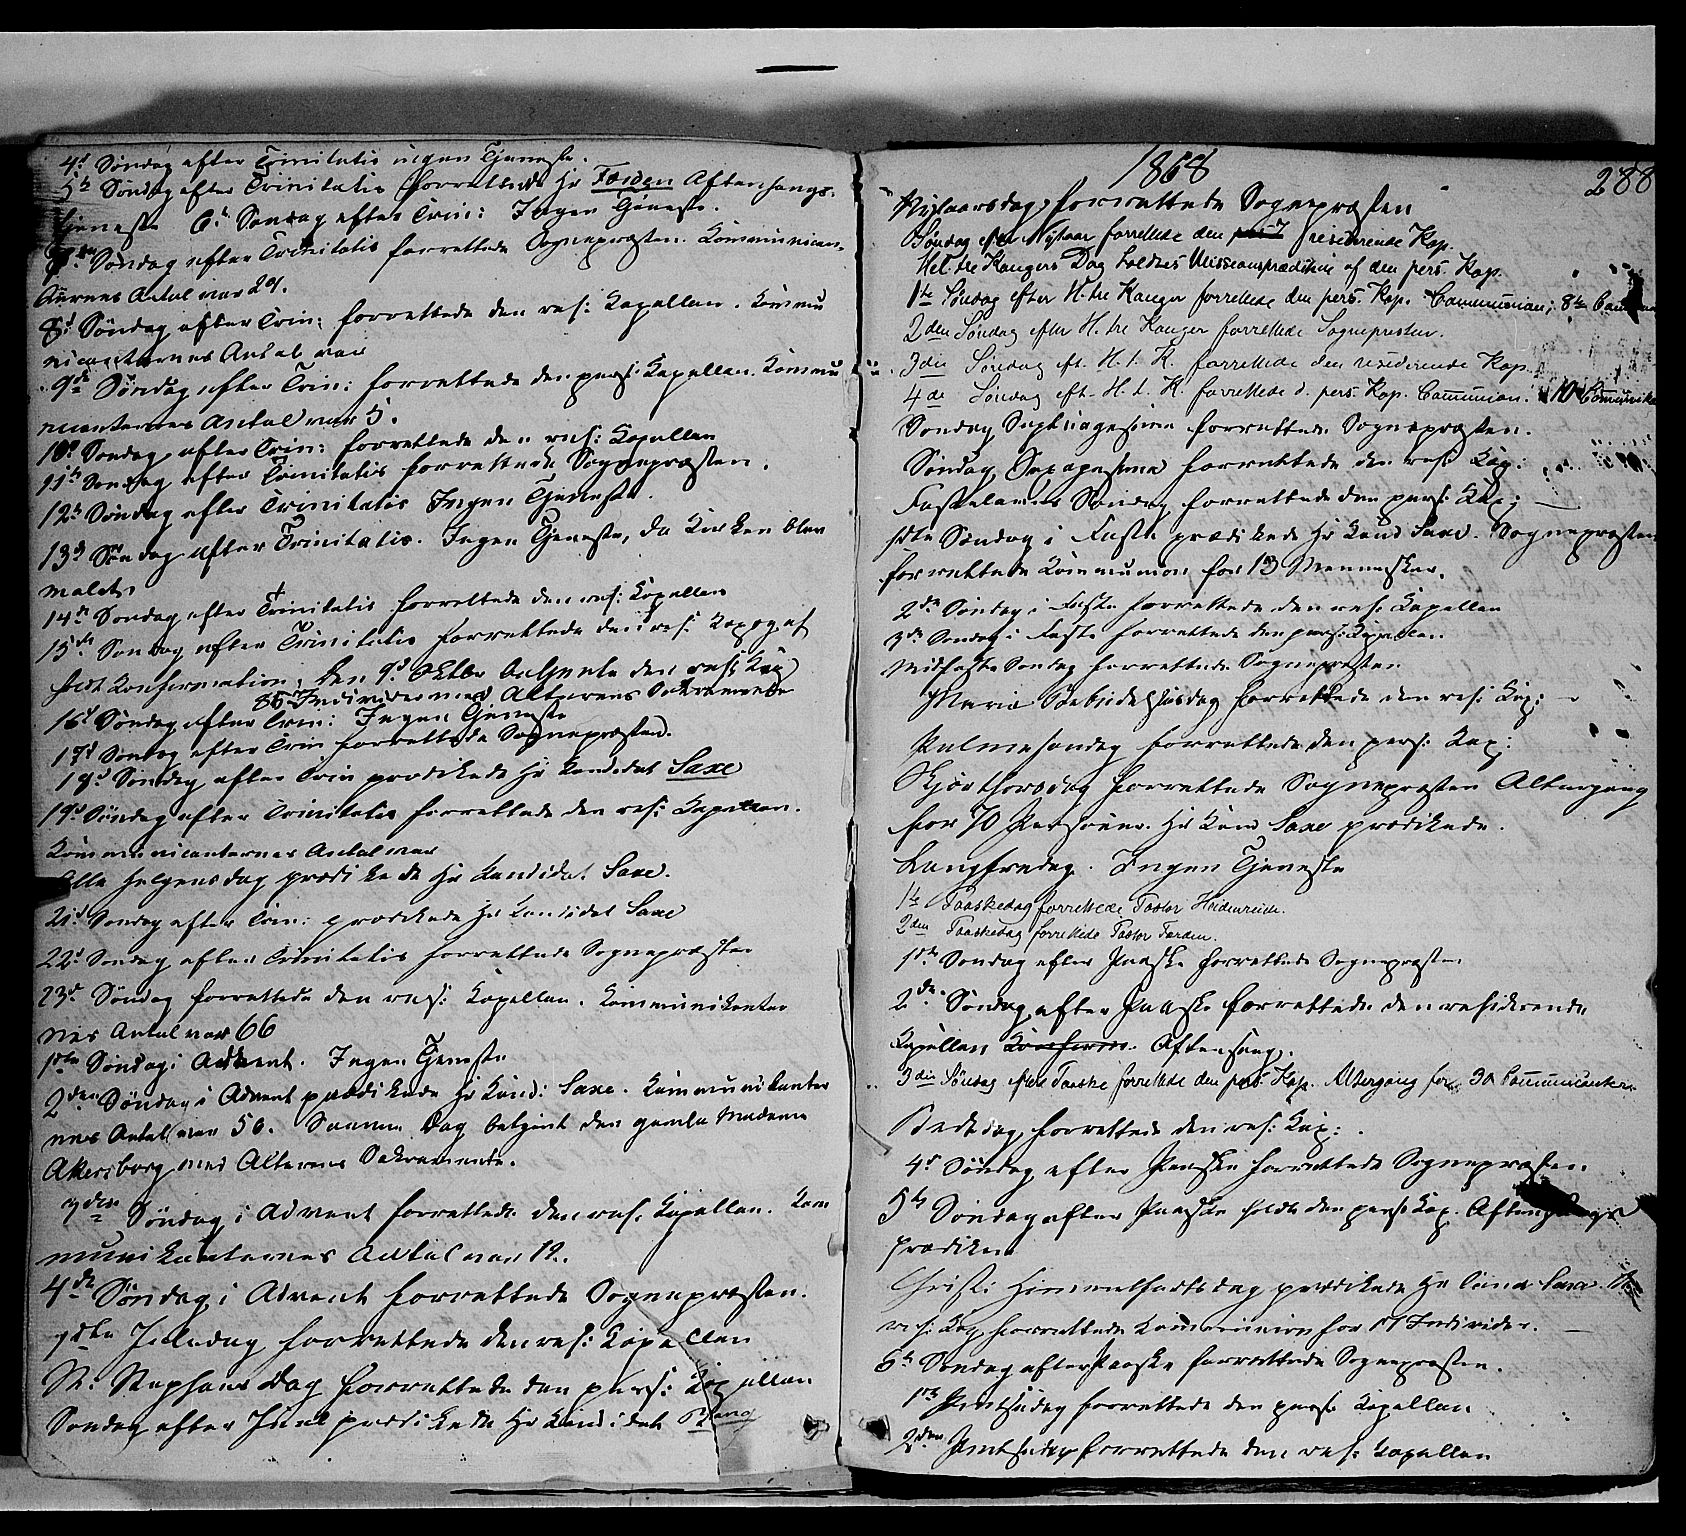 4d Søndag efter Trinitatis ingen Tjeneste.
5te Søndag efter Trinitatis forrettede Hr Færden Aftensangs-
tjeneste 6te Søndag efter Trin: Ingen Tjeneste.
Søndag efter Trinitatis forrettede Sognepræsten. Kommunican-
ternes Antal var 29.
8d Søndag efter Trin: forrettede den res: Kapellan. Kommu
nicanternes Antal var
9de Søndag efter Trin: forrettede den pers: Kapellan. Kommu
nicanternes Antal var 5.
10d Søndag efter Trin: forrettede den res: Kapellan
11te Søndag efter Trinitatis forrettede Sognepræsten.
12te Søndag efter Trinitatis Ingen Tjeneste.
13d Søndag efter Trinitatis. Ingen Tjeneste, da Kirken blev
malet.
14de Søndag efter Trinitatis forrettede den res: Kapellan
15de Søndag efter Trinitatis forrettede den res: Kap og af
holdt Konfirmation, den 9d Oktbr betjente den res: Kap
85 Individer med Alterens Sakramente
16d Søndag efter Trin: Ingen Tjeneste
17d Søndag efter Trin forrettede Sognepræsten.
18d Søndag efter Trin prædikede Hr Kandidat Saxe
19d Søndag efter Trinitatis forrettede den res: Kapellan.
Kommunicanternes Antal var
Alle Helgensdag prædikede Hr Kandidat Saxe.
21d Søndag efter Trin: prædikede Hr Kandidat Saxe
22d Søndag efter Trinitatis forrettede Sognepræsten
23d Søndag forrettede den res: Kapellan. Kommunikanter
nes Antal var 66
1ste Søndag i Advent. Ingen Tjeneste
2den Søndag i Advent prædikede Hr Kand: Saxe. Kommunikanter
nes Antal var 50. Samme Dag betjent den gamle Madame
Akersborg med Alterens Sakramente.
3den Søndag i Advent forrettede den res: Kapellan. Kom
munikanternes Antal var 12.
4de Søndag i Advent forrettede Sognepræsten.
1ste Juledag forrettede den res: Kapellan
St: Stephans Dag forrettede den pers: Kapellan
Søndag efter Juul prædikede Hr Kandidat
1868
288
Nytaarsdag forrettede Sognepræsten
Søndag efter Nytaar forrettede den residerende Kap.
Hel. tre Kongers Dag holdtes Missionsprædiken af den pers. Kap.
1ste Søndag efter H. tre Konger forrettede den pers. Kap. Communion; 8te
2den Søndag efter H. tre Konger forrettede Sognepresten.
3die Søndag eft. H. t. K. forrettede den residerende Kap.
4de Søndag eft. H. t. K. forrettede d. pers. Kap. Communion. 10
Søndag Septuagesima forrettede Sognepræsten.
Søndag Sexagesima forrettede den res: Kap:
Fastelavns Søndag forrettede den pers: Kap:
1ste Søndag i Faste prædikede Hr Kand Saxe. Sognepræsten
forrettede Kommunion for 13 Mennesker.
2de Søndag i Faste forrettede den res: Kapellan
3de Søndag i Faste forrettede den pers: Kapellan
Midfaste Søndag forrettede Sognepræsten
Mariæ Bebudelsesdag forrettede den res: Kap:
Palmesøndag forrettede den pers: Kap:
Skjærthorsdag forrettede Sognepræsten Altergang
for 70 Personer. Hr Kand Saxe prædikede.
Langfredag. Ingen Tjeneste
1ste Paaskedag forrettede Pastor Heidenreich.
2den Paaskedag forrettede Pastor Færden.
1ste Søndag efter Paaske forrettede Sognepræsten
2de Søndag efter Paaske forrettede den residerende
Kapellan Konfirm. Aftensang.
3die Søndag efter Paaske forrettede den pers Kap. Altergang for 30 Communicanter.
Bededag forrettede den res: Kap:
4d Søndag efter Paaske forrettede Sognepræsten.
5te Søndag efter Paaske holdt den pers: Kap. Aftensangs
prædiken
Christi Himmelfartsdag prædikede Hr Cand Saxe.
res: Kap forrettede Kommunion for 17 Individer.
6te Søndag efter Paaske forrettede Sognepræsten.
1ste Pintsedag forrettede den pers: Kapellan
2den Pintsedag forrettede den res: Kapellan